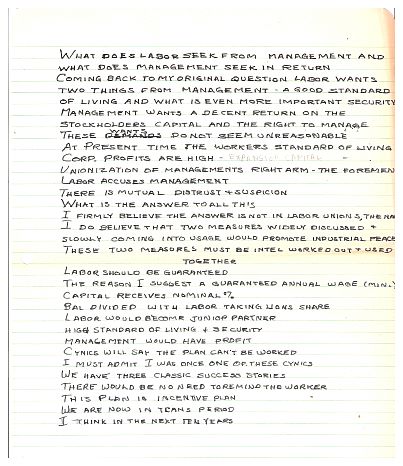 WHAT DOES LABOR SEEK FROM MANAGEMENT AND
WHAT DOES MANAGEMENT SEEK IN RETURN
COMING BACK TO MY ORIGINAL QUESTION LABOR WANTS
TWO THINGS FROM MANAGEMENT - A GOOD STANDARD
OF LIVING AND WHAT IS EVEN MORE IMPORTANT SECURITY
MANAGEMENT WANTS A DECENT RETURN ON THE
STOCKHOLDERS CAPITAL AND THE RIGHT TO MANAGE
THESE WANTS DO NOT SEEM UNREASONABLE
AT PRESENT TIME THE WORKERS STANDARD OF LIVING
CORP. PROFITS ARE HIGH - EXPANSION CAPITAL
UNIONIZATION OF MANAGEMENTS RIGHT ARM - THE FOREMEN
LABOR ACCUSES MANAGEMENT
THERE IS MUTUAL DISTRUST + SUSPICION
WHAT IS THE ANSWER TO ALL THIS
I FIRMLY BELIEVE THE ANSWER IS NOT IN LABOR UNIONS, THE
I DO BELIEVE THAT TWO MEASURES WIDELY DISCUSSED +
SLOWLY COMING INTO USAGE WOULD PROMOTE INDUSTRIAL PEACE
THESE TWO MEASURES MUST BE INTEL WORKED OUT + USED
TOGETHER
LABOR SHOULD BE GUARANTEED
THE REASON I SUGGEST A GUARANTEED ANNUAL WAGE (MIN.
CAPITAL RECEIVES NOMINAL %
BAL DIVIDED WITH LABOR TAKING LIONS SHARE
LABOR WOULD BECOME JUNIOR PARTNER
HIGH STANDARD OF LIVING + SECURITY
MANAGEMENT WOULD HAVE PROFIT
CYNICS WILL SAY THE PLAN CAN'T BE WORKED
I MUST ADMIT I WAS ONCE ONE OF THESE CYNICS
WE HAVE THREE CLASSIC SUCCESS STORIES
THERE WOULD BE NO NEED TO REMIND THE WORKER
THIS PLAN IS INCENTIVE PLAN
WE ARE NOW IN TRANS PERIOD
I THINK IN THE NEXT TEN YEARS